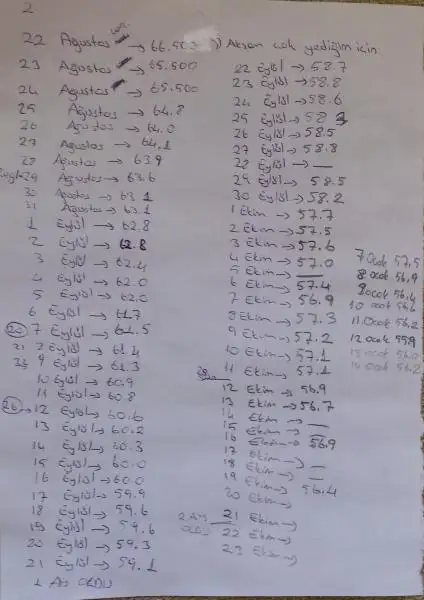 2
22 Ağustos → 66.500
23 Ağustos → 65.500
24 Ağustos → 65.500
25 Ağustos → 64.8
26 Ağustos → 64.0
27 Ağustos → 64.1
28 Ağustos → 63.9
29 Ağustos → 63.6
30 Ağustos → 63.1
31 Ağustos → 63.1
1 Eylül → 62.8
2 Eylül → 62.8
3 Eylül → 62.4
4 Eylül → 62.0
5 Eylül → 62.0
6 Eylül → 61.7
20 7 Eylül → 61.5
21 8 Eylül → 61.4
9 Eylül → 61.3
10 Eylül → 60.9
11 Eylül → 60.8
26 → 12 Eylül → 60.6
13 Eylül → 60.2
14 Eylül → 60.3
15 Eylül → 60.0
16 Eylül → 60.0
17 Eylül → 59.9
18 Eylül → 59.6
19 Eylül → 59.6
20 Eylül → 59.3
21 Eylül → 59.1
1 Ay OLDU
Akşam çok yediğim için
22 Eylül → 58.7
23 Eylül → 58.8
24 Eylül → 58.6
25 Eylül → 58.3
26 Eylül → 58.5
27 Eylül → 58.8
28 Eylül → —
29 Eylül → 58.5
30 Eylül → 58.2
1 Ekim → 57.7
2 Ekim → 57.5
3 Ekim → 57.6
4 Ekim → 57.0
5 Ekim → —
6 Ekim → 57.4
7 Ekim → 56.9
8 Ekim → 57.3
9 Ekim → 57.2
10 Ekim → 57.1
11 Ekim → 57.1
12 Ekim → 56.9
13 Ekim → 56.7
14 Ekim → —
15 Ekim → —
16 Ekim → 56.9
17 Ekim → —
18 Ekim → —
19 Ekim → 56.4
20 Ekim →
2 AY OLDU
21 Ekim →
22 Ekim →
23 Ekim →
7 Ocak 57.5
8 Ocak 56.9
9 Ocak 56.4
10 Ocak 56.6
11 Ocak 56.2
12 Ocak 55.9
13 Ocak 56.0
14 Ocak 56.2